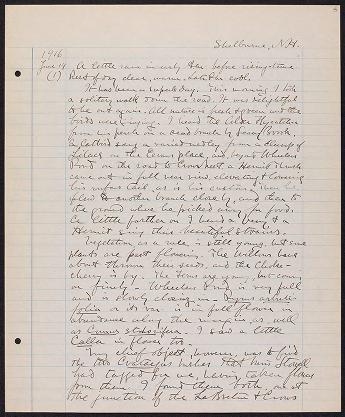 Shelburne, N.H.
1916
June 14 A little rain in early a.m. before rising-time.
(1) Rest of day clear, warm. Late P.M. cool.
It has been a superb day. This morning I took
a solitary walk down the road. It was delightful
to be out again. All nature is fresh & green and the
birds were singing. I heard the Alder Flycatcher
from his perch on a dead branch by Brook.
A Catbird sang a varied medley from a clump of
Lilacs on the place, and beyond Wheeler
Pond on the road to a Hermit Thrush
came out in full view, elevating & lowering
his rufous tail, as is his custom. Then he
flew to another branch close by, and then to
the ground where he picked away for food.
A little farther on I heard a &
Hermit sing their beautiful strains.
Vegetation, as a rule, is still young, but some
plants are past flowering. The Willows have
about thrown their seeds, and the Choke-
cherry is by. The ferns are young, but coming
on finely. Wheeler Pond is very full
and is slowly closing in. Pyrus arbuti-
folia or its var. is in full flower in
abundance along the margin, as well
as Cornus stolonifera. I saw a little
Calla in flower too.
My chief object, however, was to find
the two Crataegus bushes that Miss
had tagged for me, having taken flowers
from them. I found them both, one at
the junction of the &